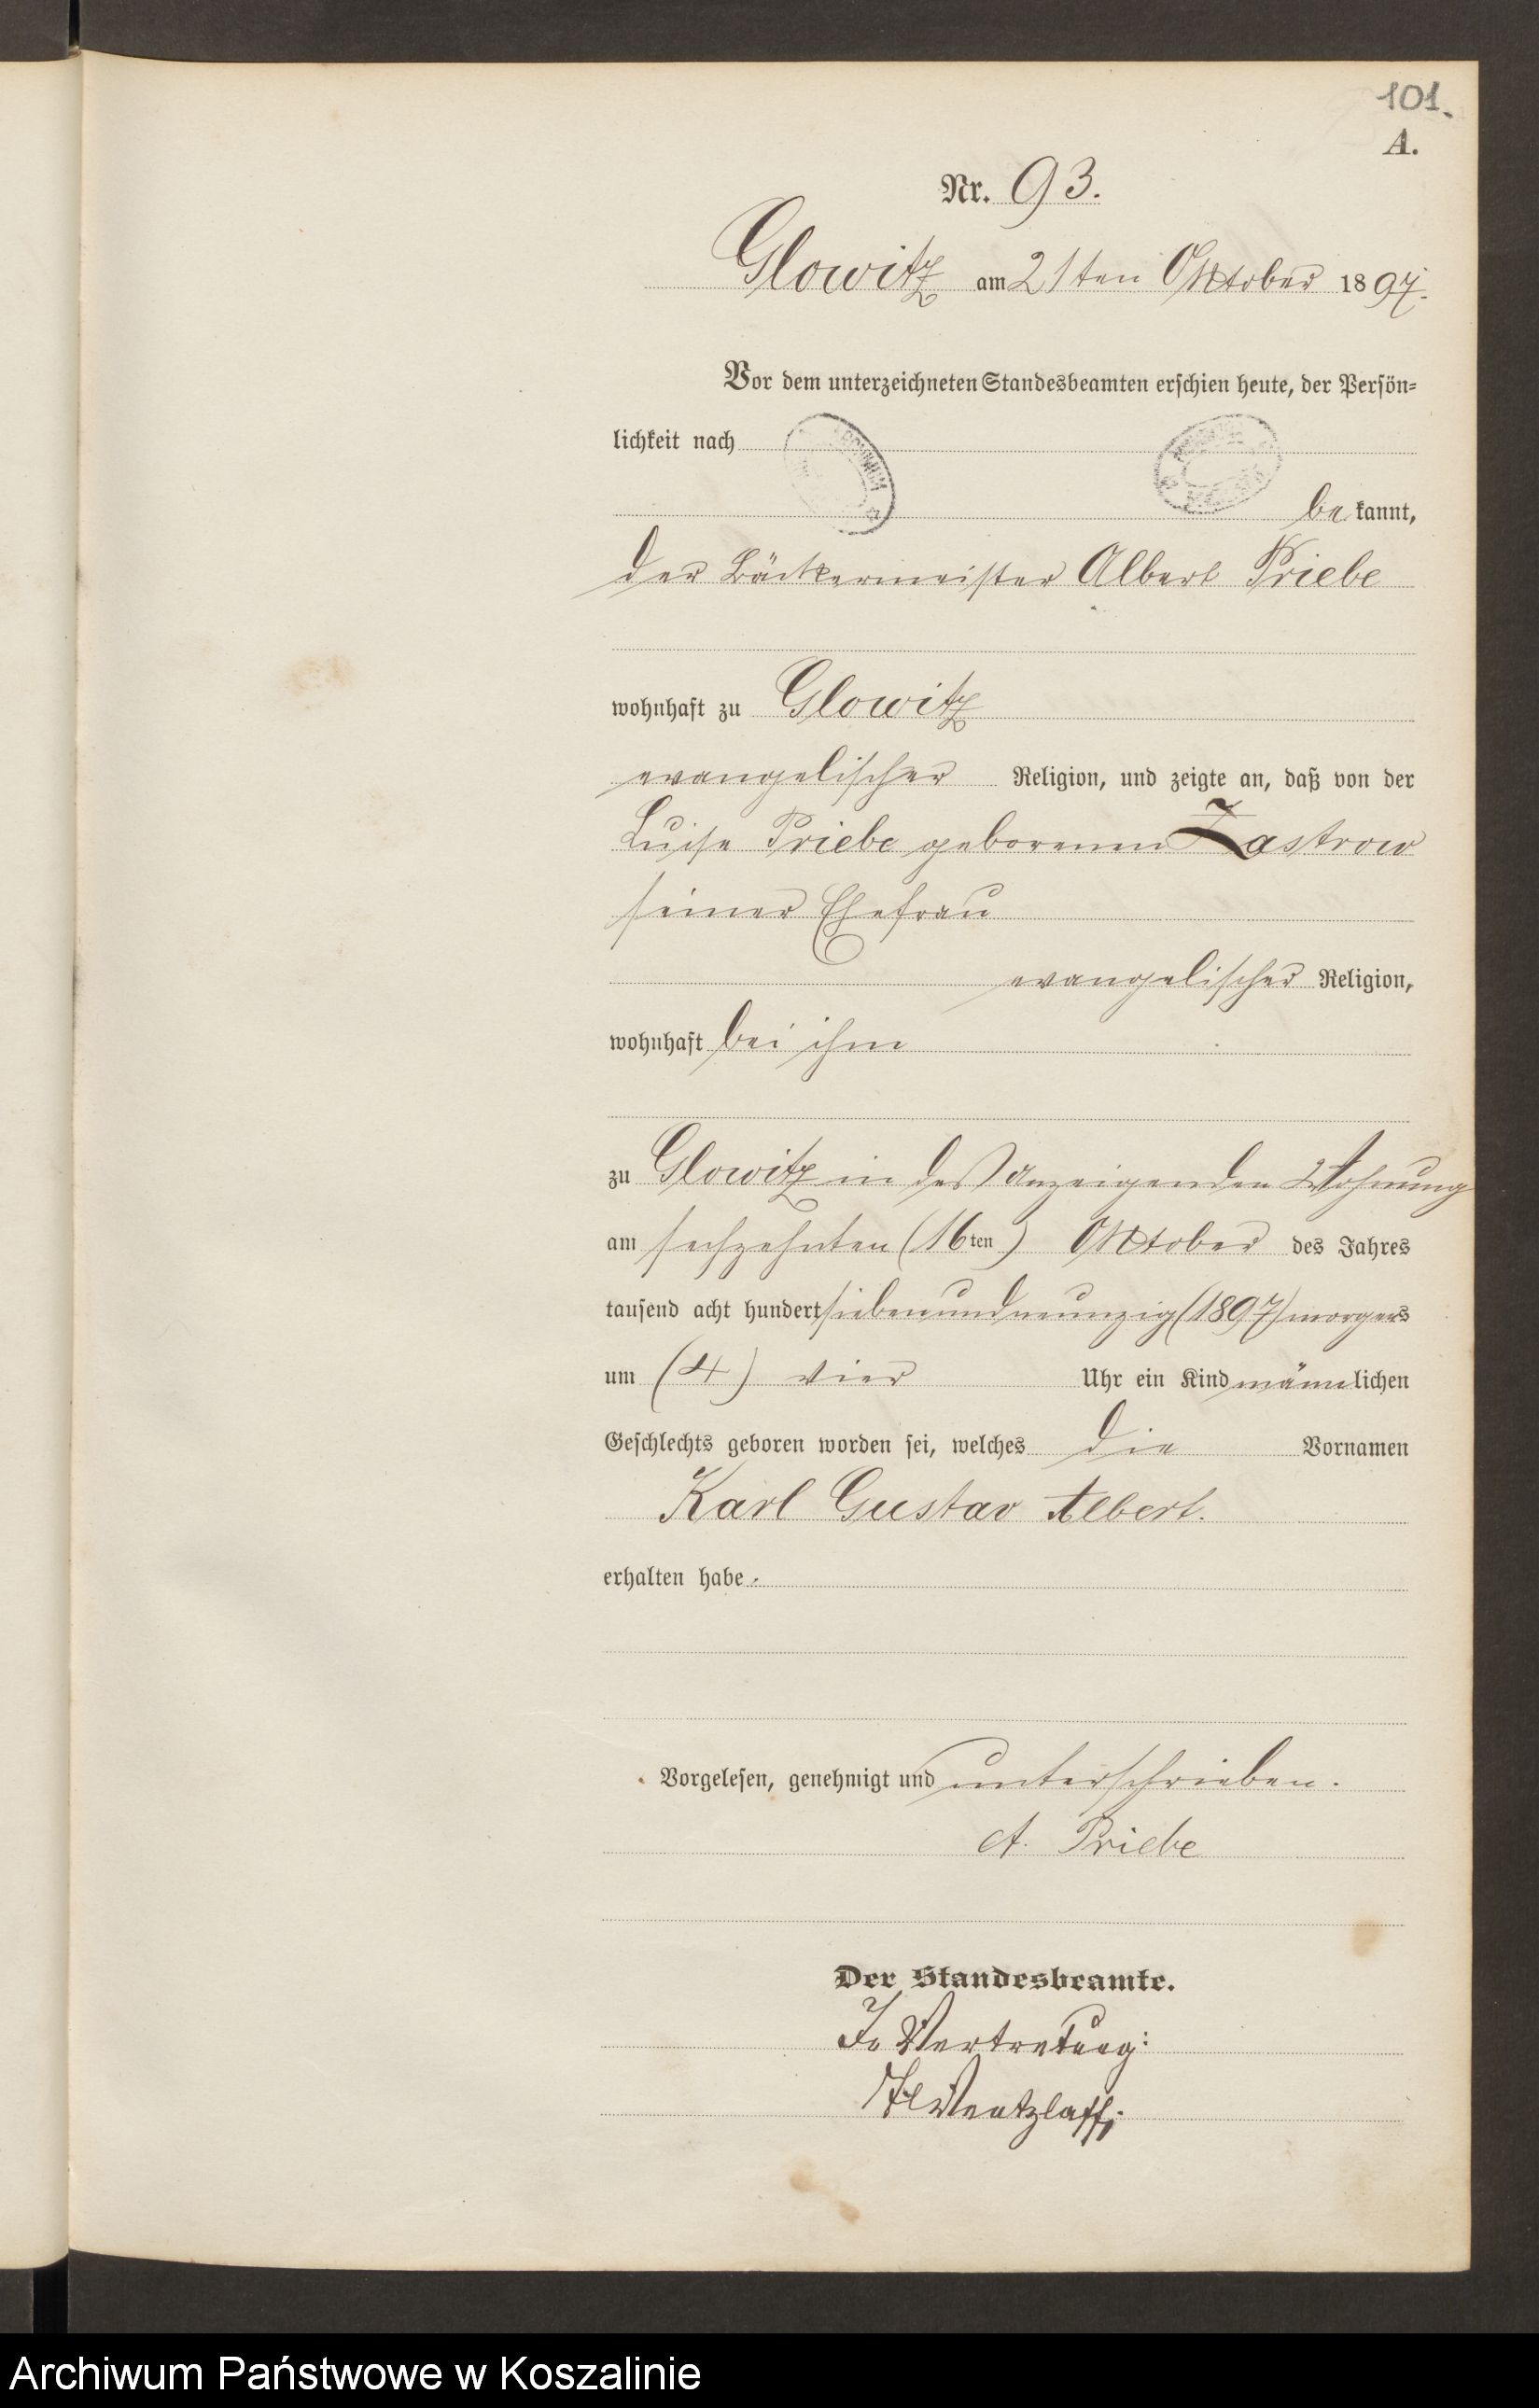 101.
A.
Nr. 93.
Glowitz am 21ten Oktober 1897.
Vor dem unterzeichneten Standesbeamten erschien heute, der Persön-
lichkeit nach
be kannt,
der Bäckermeister Albert Priebe
wohnhaft zu Glowitz
evangelischer Religion, und zeigte an, daß von der
Luise Priebe geborenen Zastrow
seiner Ehefrau
evangelischer Religion,
wohnhaft bei ihm
zu Glowitz in des Anzeigenden Wohnung
am sechzehnten (16ten) Oktober des Jahres
tausend acht hundert siebenundneunzig (1897) morgens
um (4) vier Uhr ein Kind männlichen
Geschlechts geboren worden sei, welches die Vornamen
Karl Gustav Albert.
erhalten habe.
Vorgelesen, genehmigt und unterschrieben.
A. Priebe
Der Standesbeamte.
In Vertretung:
Wentzlaff.
Archiwum Państwowe w Koszalinie